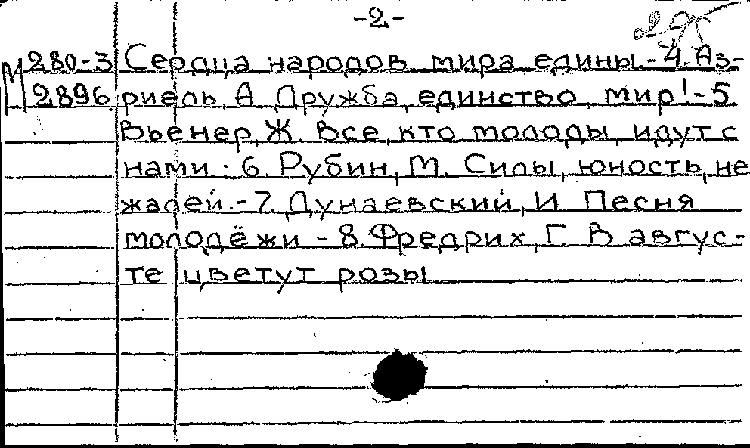 -2-
М280-3 Сердца народов мира едины.-4. Аз-
2896 риель, А. Дружба, единство, мир!-5.
Вьенер, Ж. Все, кто молоды, идут с
нами.-6. Рубин, М. Силы, юность, не
жалей.-7. Дунаевский, И. Песня
молодёжи.-8. Фредрих, Г. В авгус-
те цветут розы